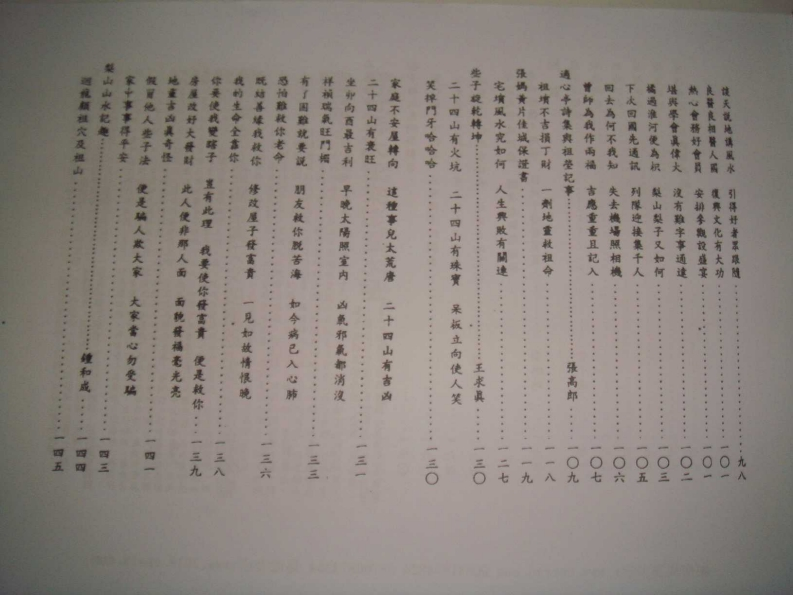 談天說地講風水　引得好者眾跟隨……九八
良醫良相醫人國　復興文化有大功……一〇一
熱心會務好會員　安排參觀設盛宴……一〇一
堪輿學會真偉大　沒有難字事通達……一〇二
橘過淮河便為枳　梨山梨子又如何……一〇三
下次回國先通訊　列隊迎接集千人……一〇五
回去為何不我知　失去機場照相機……一〇六
曾師為我作兩福　吉應重重且記入……一〇七
過心亭詩集與祖塋記事……張高郎……一〇九
祖墳不吉損丁財　一劑地靈救祖命……一一八
張媽黃片佳城保證書……一一九
宅墳風水究如何　人生興敗有關連……一二七
些子旋乾轉坤……王求真……一三〇
二十四山有火坑　二十四山有珠寶　呆板立向使人笑
笑掉門牙哈哈哈……一三〇
家庭不安屋轉向　這種事兒太荒唐　二十四山有吉凶
二十四山有衰旺……一三一
坐卯向酉最吉利　早晚太陽照室內　凶氣邪氣都消沒
祥禎瑞氣旺門楣……一三三
有了困難就要說　朋友救你脫苦海　如今病已入心肺
恐怕難救你老命……
既結善緣我救你　修改屋子發富貴　一見如故情恨晚
我的生命全靠你……一三六
你要使我變瞎子　豈有此理　我要使你發富貴　便是救你……一三八
房屋改好大發財　此人便非那人面　面貌發福毫光亮
地靈吉凶真奇怪……一三九
假冒他人些子法　便是騙人欺大家　大家當心勿受騙
家中事事得平安……一四一
梨山山水記趣……一四三
鍾和成……一四四
祖穴及祖山……一四五